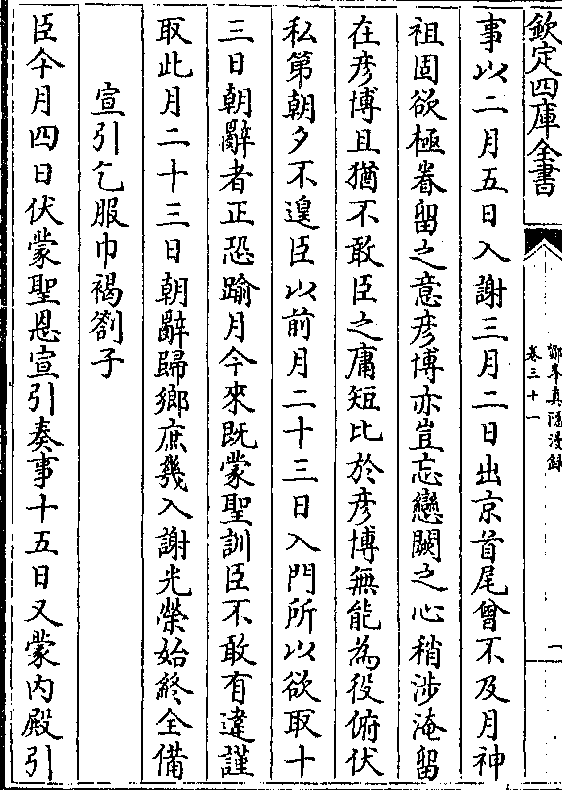 欽定四庫全書
鄮峯真隱漫錄
卷三十一
一
事以二月五日入謝三月二日出京首尾曾不及月神
祖固欲極眷留之意彦博亦豈忘戀闕之心稍涉淹留
在彦博且猶不敢臣之庸短比於彦博無能為役俯伏
私第朝夕不遑臣以前月二十三日入門所以欲取十
三日朝辭者正恐踰月今來既蒙聖訓臣不敢有違謹
取此月二十三日朝辭歸鄉庶幾入謝光榮始終全備
宣引乞服巾褐劄子
臣今月四日伏蒙聖恩宣引奏事十五日又蒙内殿引